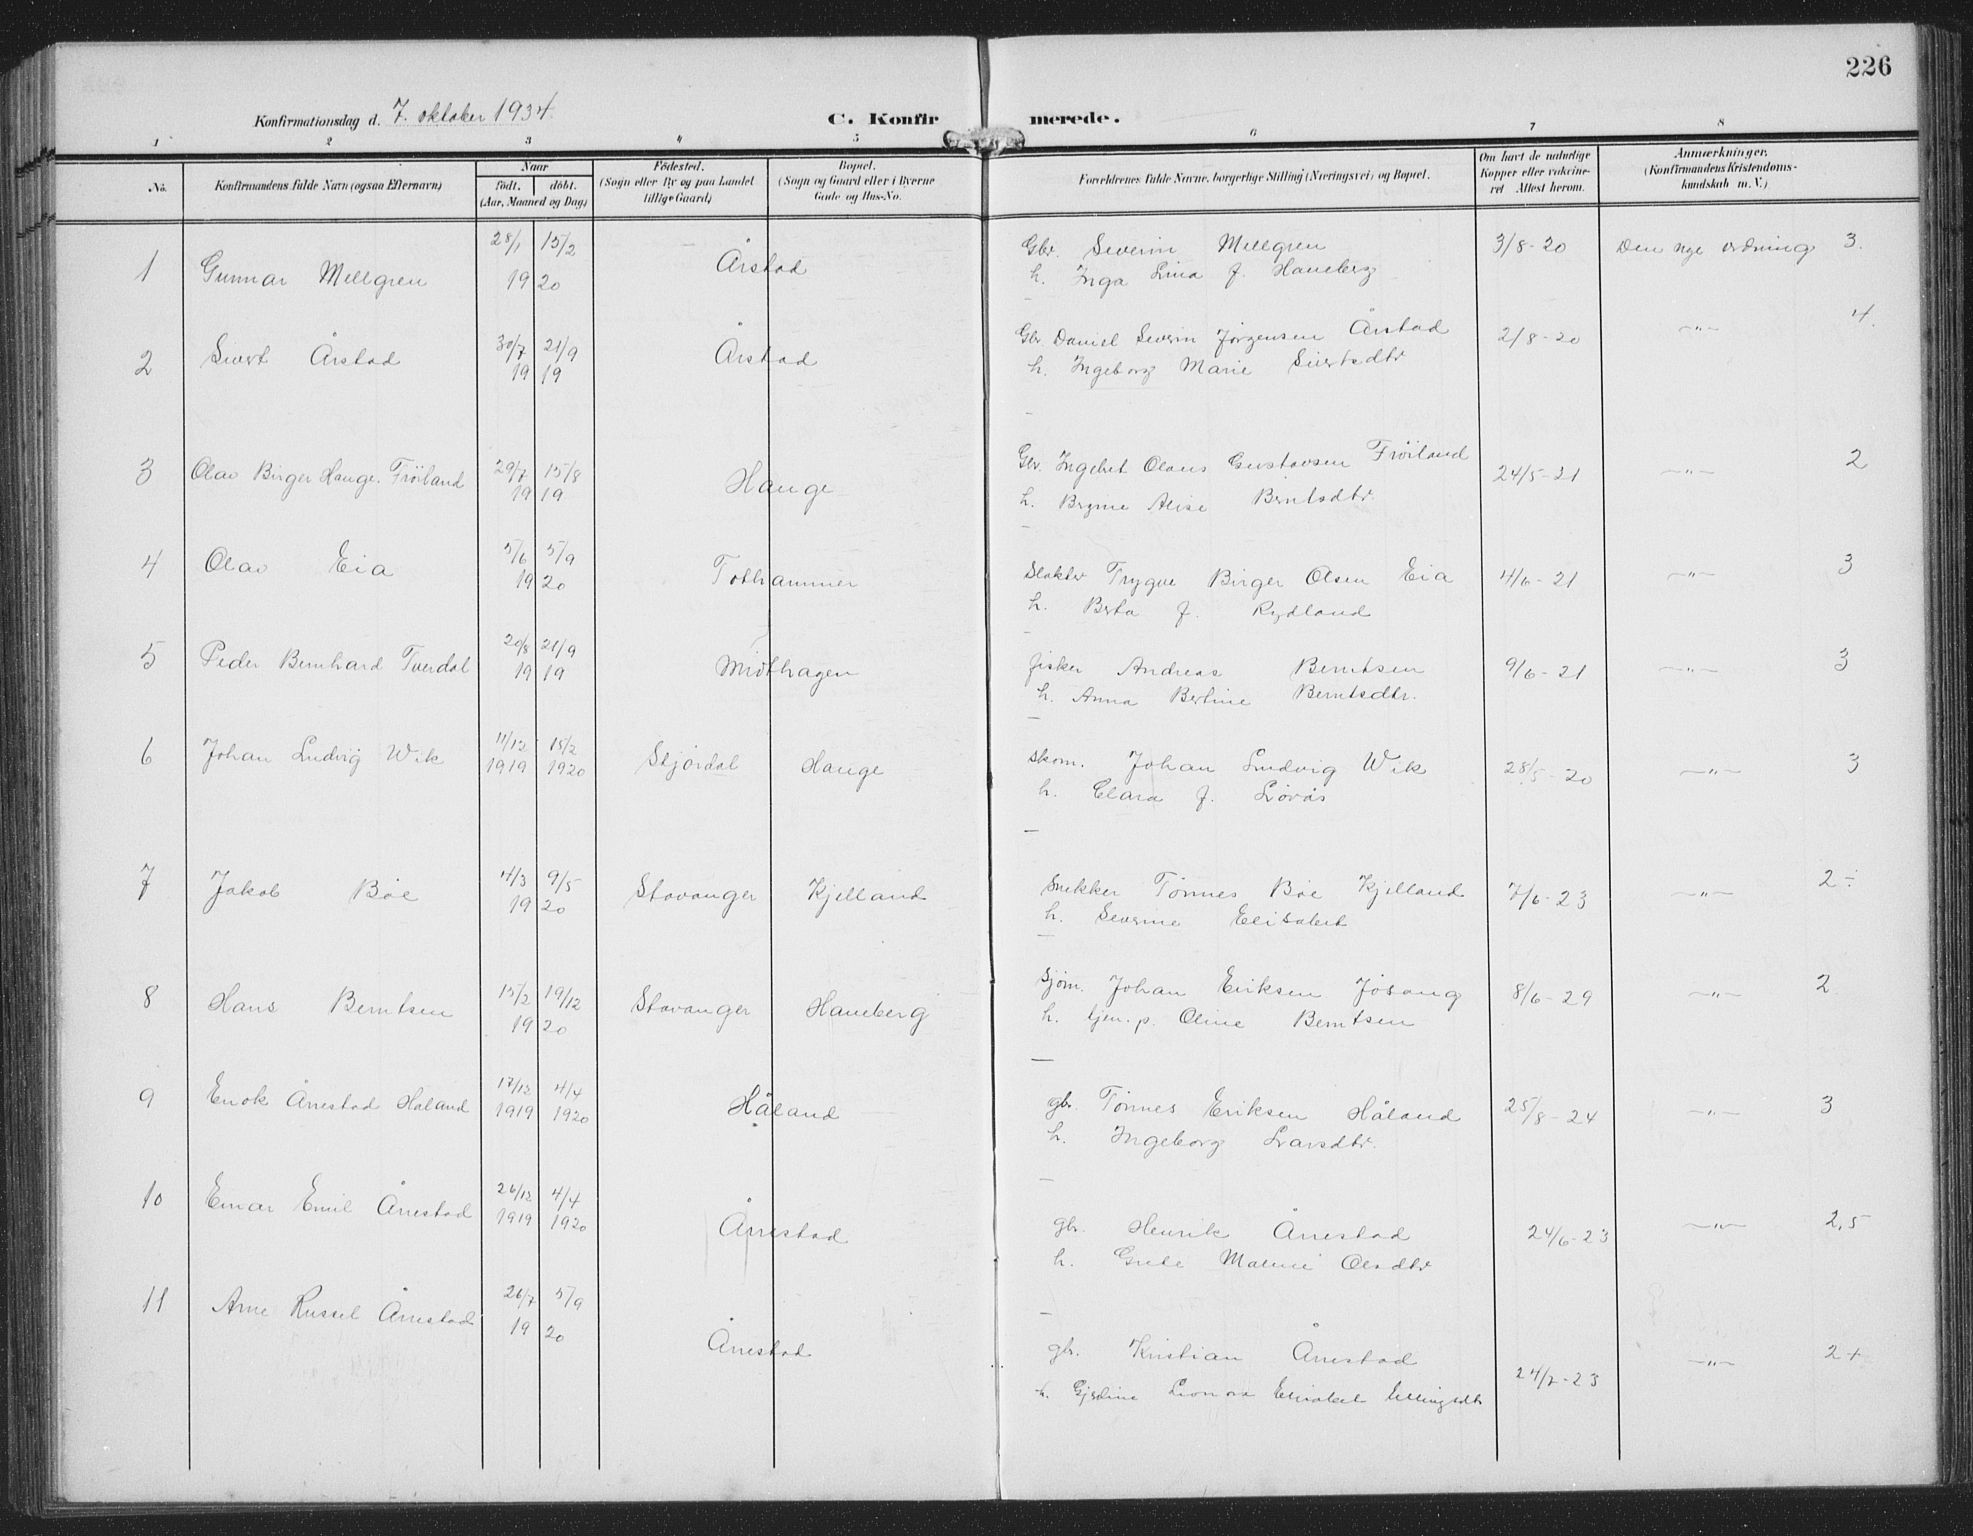 226
Konfirmationsdag d. 7. oktober 1934.
C. Konfirmerede.
1 2 3 4 5 6 7 8
No. Konfirmandens fulde Navn (ogsaa Efternavn) Naar født. døbt. (Aar, Maaned og Dag) Fødested. (Sogn eller By og paa Landet tillige Gaard) Bopæl. (Sogn og Gaard eller i Byerne Gade og Hus-No. Forældrenes fulde Navne, borgerlige Stilling (Næringsvei) og Bopæl. Om havt de naturlige Kopper eller vakcineret Attest herom. Anmærkninger. (Konfirmandens Kristendomskundskab m. V.)
1 Gunnar Mellgren 28/1 1920 15/2 Årstad Gbr. Severin Mellgren 3/8-20 Den nye ordning 3.
h. Inga Lina f. Haneberg
2 Sivert Årstad 30/7 1919 21/9 Årstad Gbr. Daniel Severin Jørgensen Årstad 2/8-20 -"- 4.
h. Ingeborg Marie Sivertsdtr
3 Olav Birger Hauge Frøiland 29/7 1919 15/8 Hauge Gbr. Ingebret Olaus Gustavsen Frøiland 24/5-21 -"- 2
h. Bryne Alise Berntsdtr.
4 Olav Eia 5/6 1920 5/9 Tothammer Slakter Trygve Birger Olsen Eia 4/6-21 -"- 3
h. Berta f. Rydland
5 Peder Bernhard Tverdal 20/8 1919 21/9 Midthagen fisker Andreas Berntsen 9/6-21 -"- 3
h. Anna Bertine Berntsdtr.
6 Johan Ludvig Wik 11/12 1919 15/2 1920 Stjørdal Hauge skom. Johan Ludvig Wik 28/5-20 -"- 3
h. Clara f. Løvås
7 Jakob Bøe 4/3 1920 9/5 Stavanger Kjelland Snekker Tønnes Bøe Kjelland 7/6-23 -"- 2÷
h. Severine Elisabet
8 Hans Berntsen 15/2 1920 19/12 Stavanger Haneberg Sjøm. Johan Eriksen Jøsang 8/6-29 -"- 2
h. tjen.p. Oline Berntsen
9 Enok Årrestad Haland 17/12 1919 4/4 1920 Håland gbr. Tønnes Eriksen Håland 25/8-24 -"- 3
h. Ingeborg Larsdtr.
10 Einar Emil Årrestad 26/12 1919 4/4 1920 Årrestad gbr. Henrik Årrestad 24/6-23 -"- 2,5
h. Grete Maline Olsdtr
11 Arne Russel Årrestad 26/7 1920 5/9 Årrestad gbr. Kristian Årrestad 24/7-23 -"- 2+
h. Gjertine Leonora Elisabet Ellingsdtr